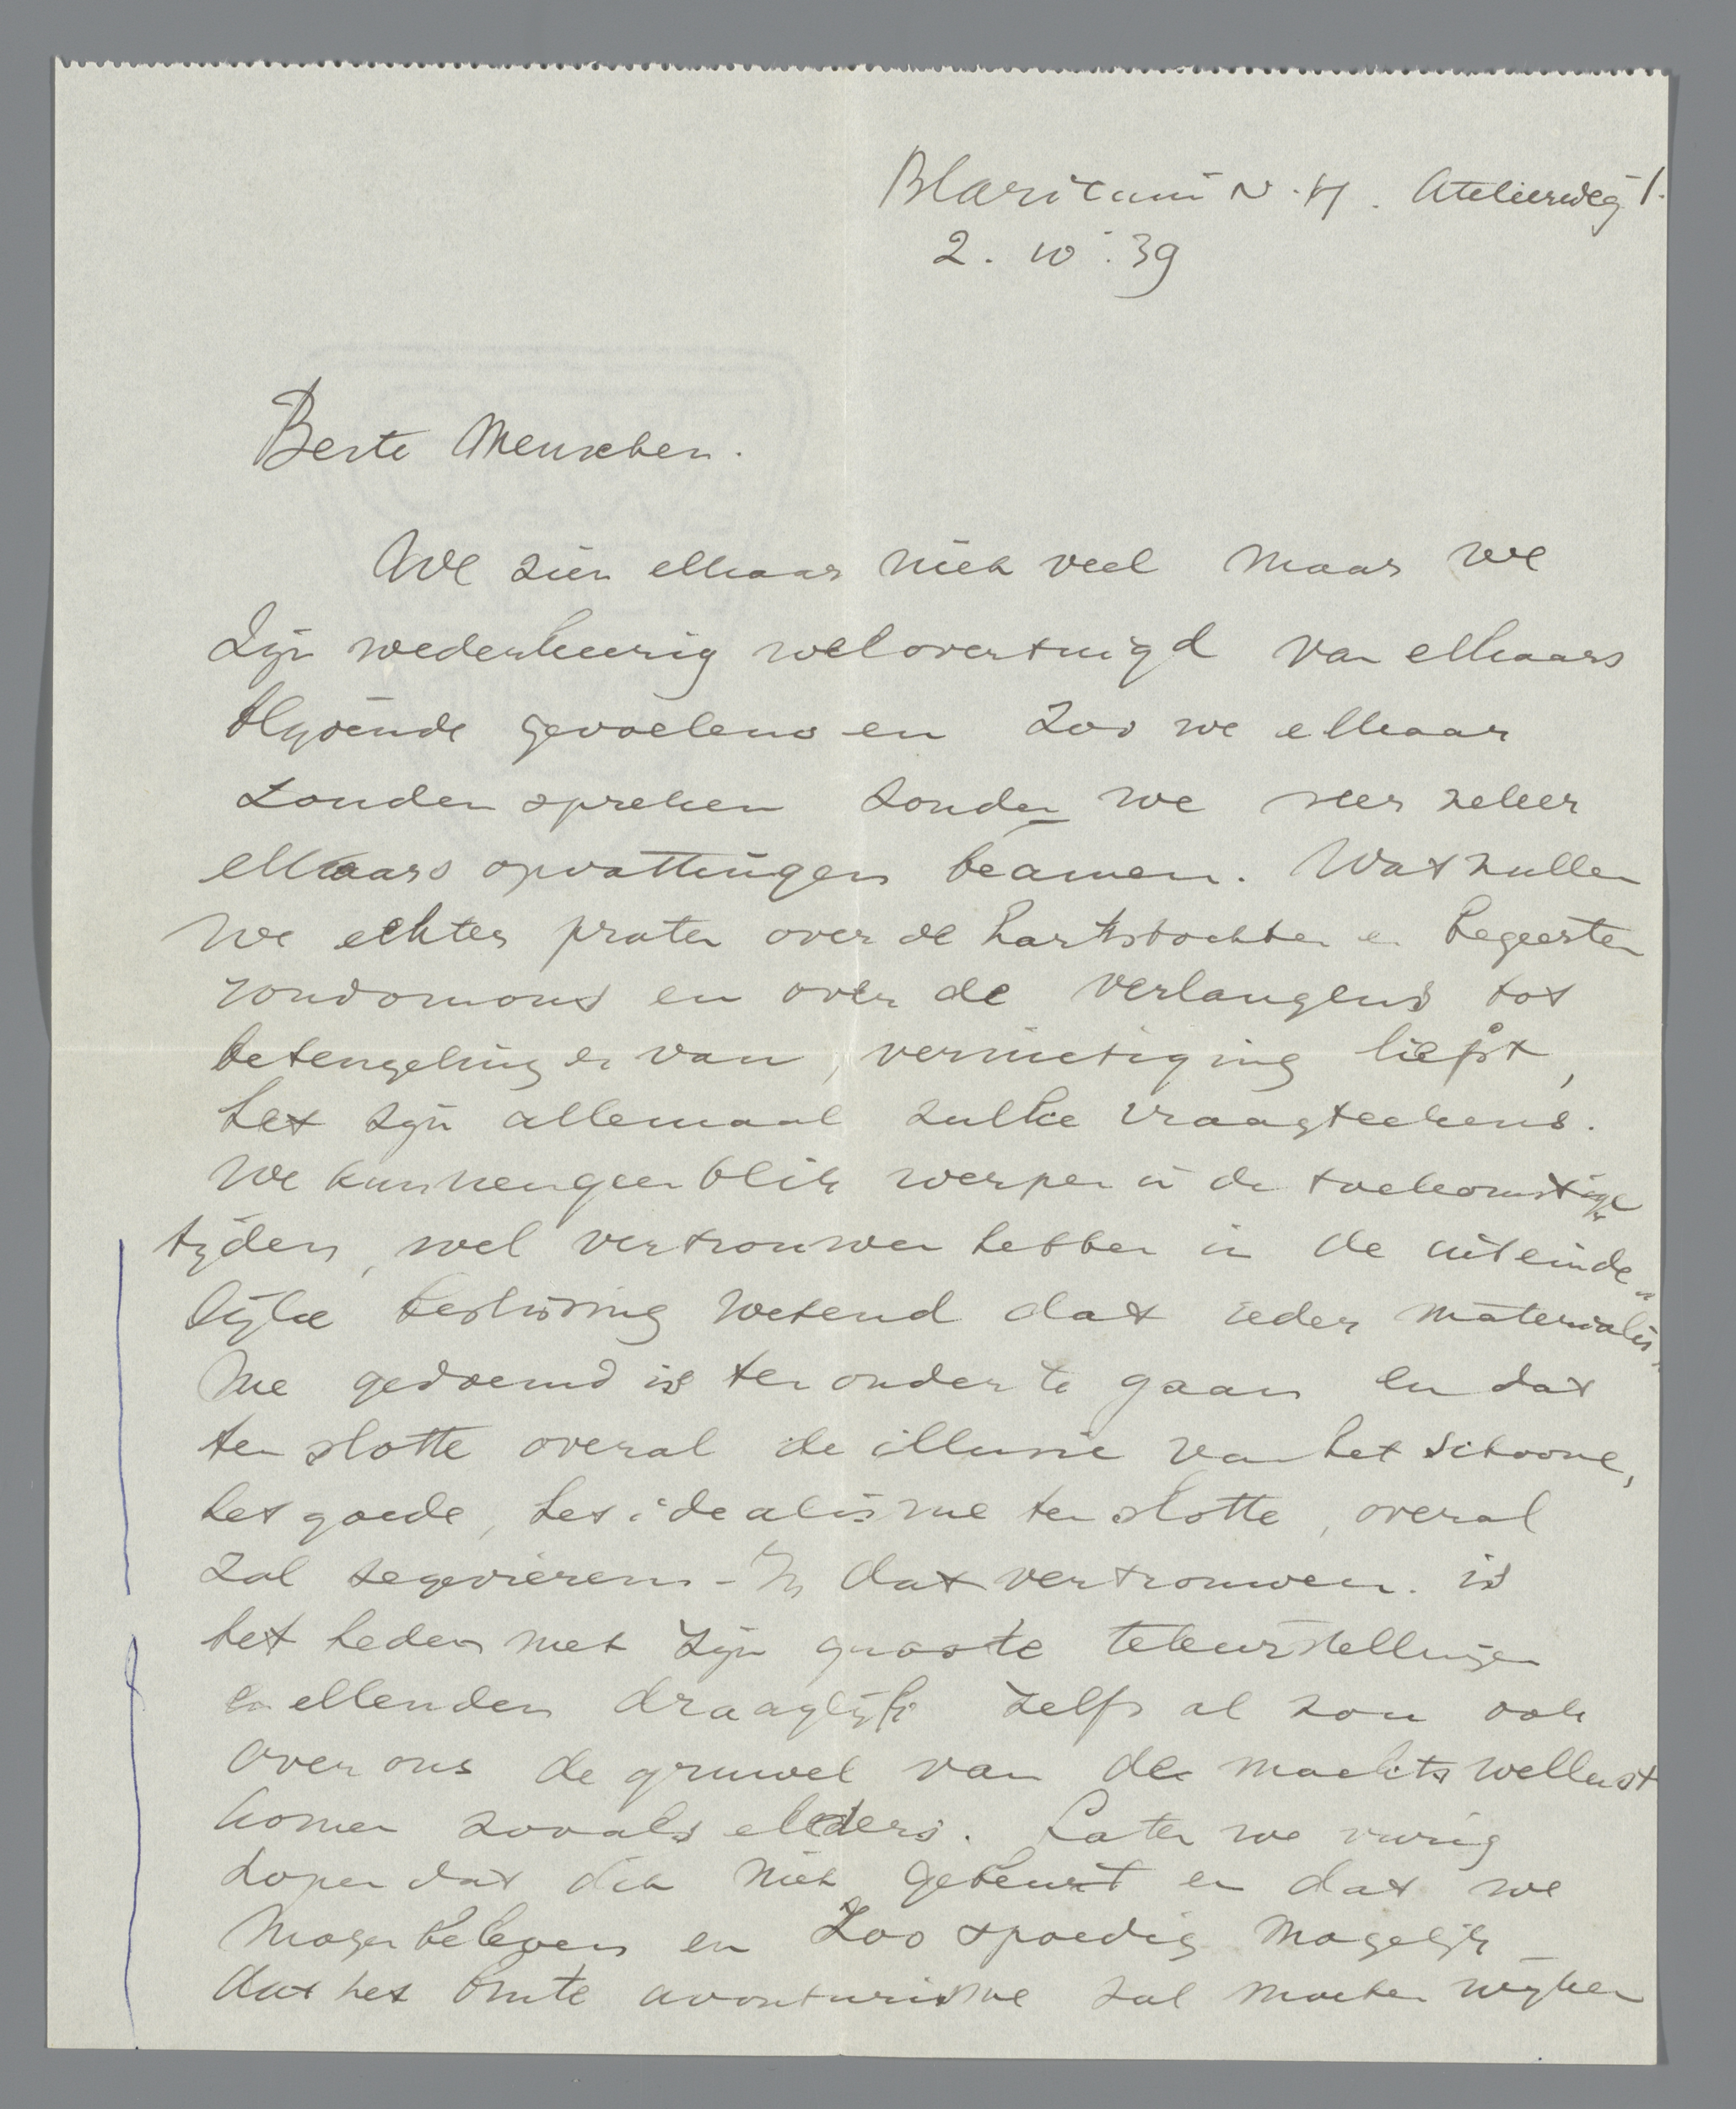 Blaricum N.H. Atelierweg 1.
2.10.39
Beste Menschen.
We zien elkaar niet veel maar we
zijn wederkeerig wel overtuigd van elkaars
blijvende gevoelens en zoo we elkaar
zouden spreken zouden we zeer zeker
elkaars opvattingen beamen. Wat zullen
we echter praten over de hartstochten en begeerten
rondom ons en over de verlangens tot
beteugeling er van, vernietiging liefst,
het zijn allemaal zulke vraagteekens.
We kunnen geen blik werpen in de toekomstige
tijden, wel vertrouwen hebben in de uiteinde-
lijke beslissing wetend dat ieder materialis-
me gedoemd is ten onder te gaan en dat
ten slotte overal de illusie van het schoone,
het goede, het idealisme ten slotte, overal
zal zegevieren. - In dat vertrouwen is
het heden met zijn grootste teleurstellingen
en ellenden draaglijk zelfs al zou ook
over ons de gruwel van de machtswellust
komen zooals elders. Laten we vurig
hopen dat dit niet gebeurt en dat we
mogen beleven en zoo spoedig mogelijk
dat het brute avonturisme zal moeten wijken